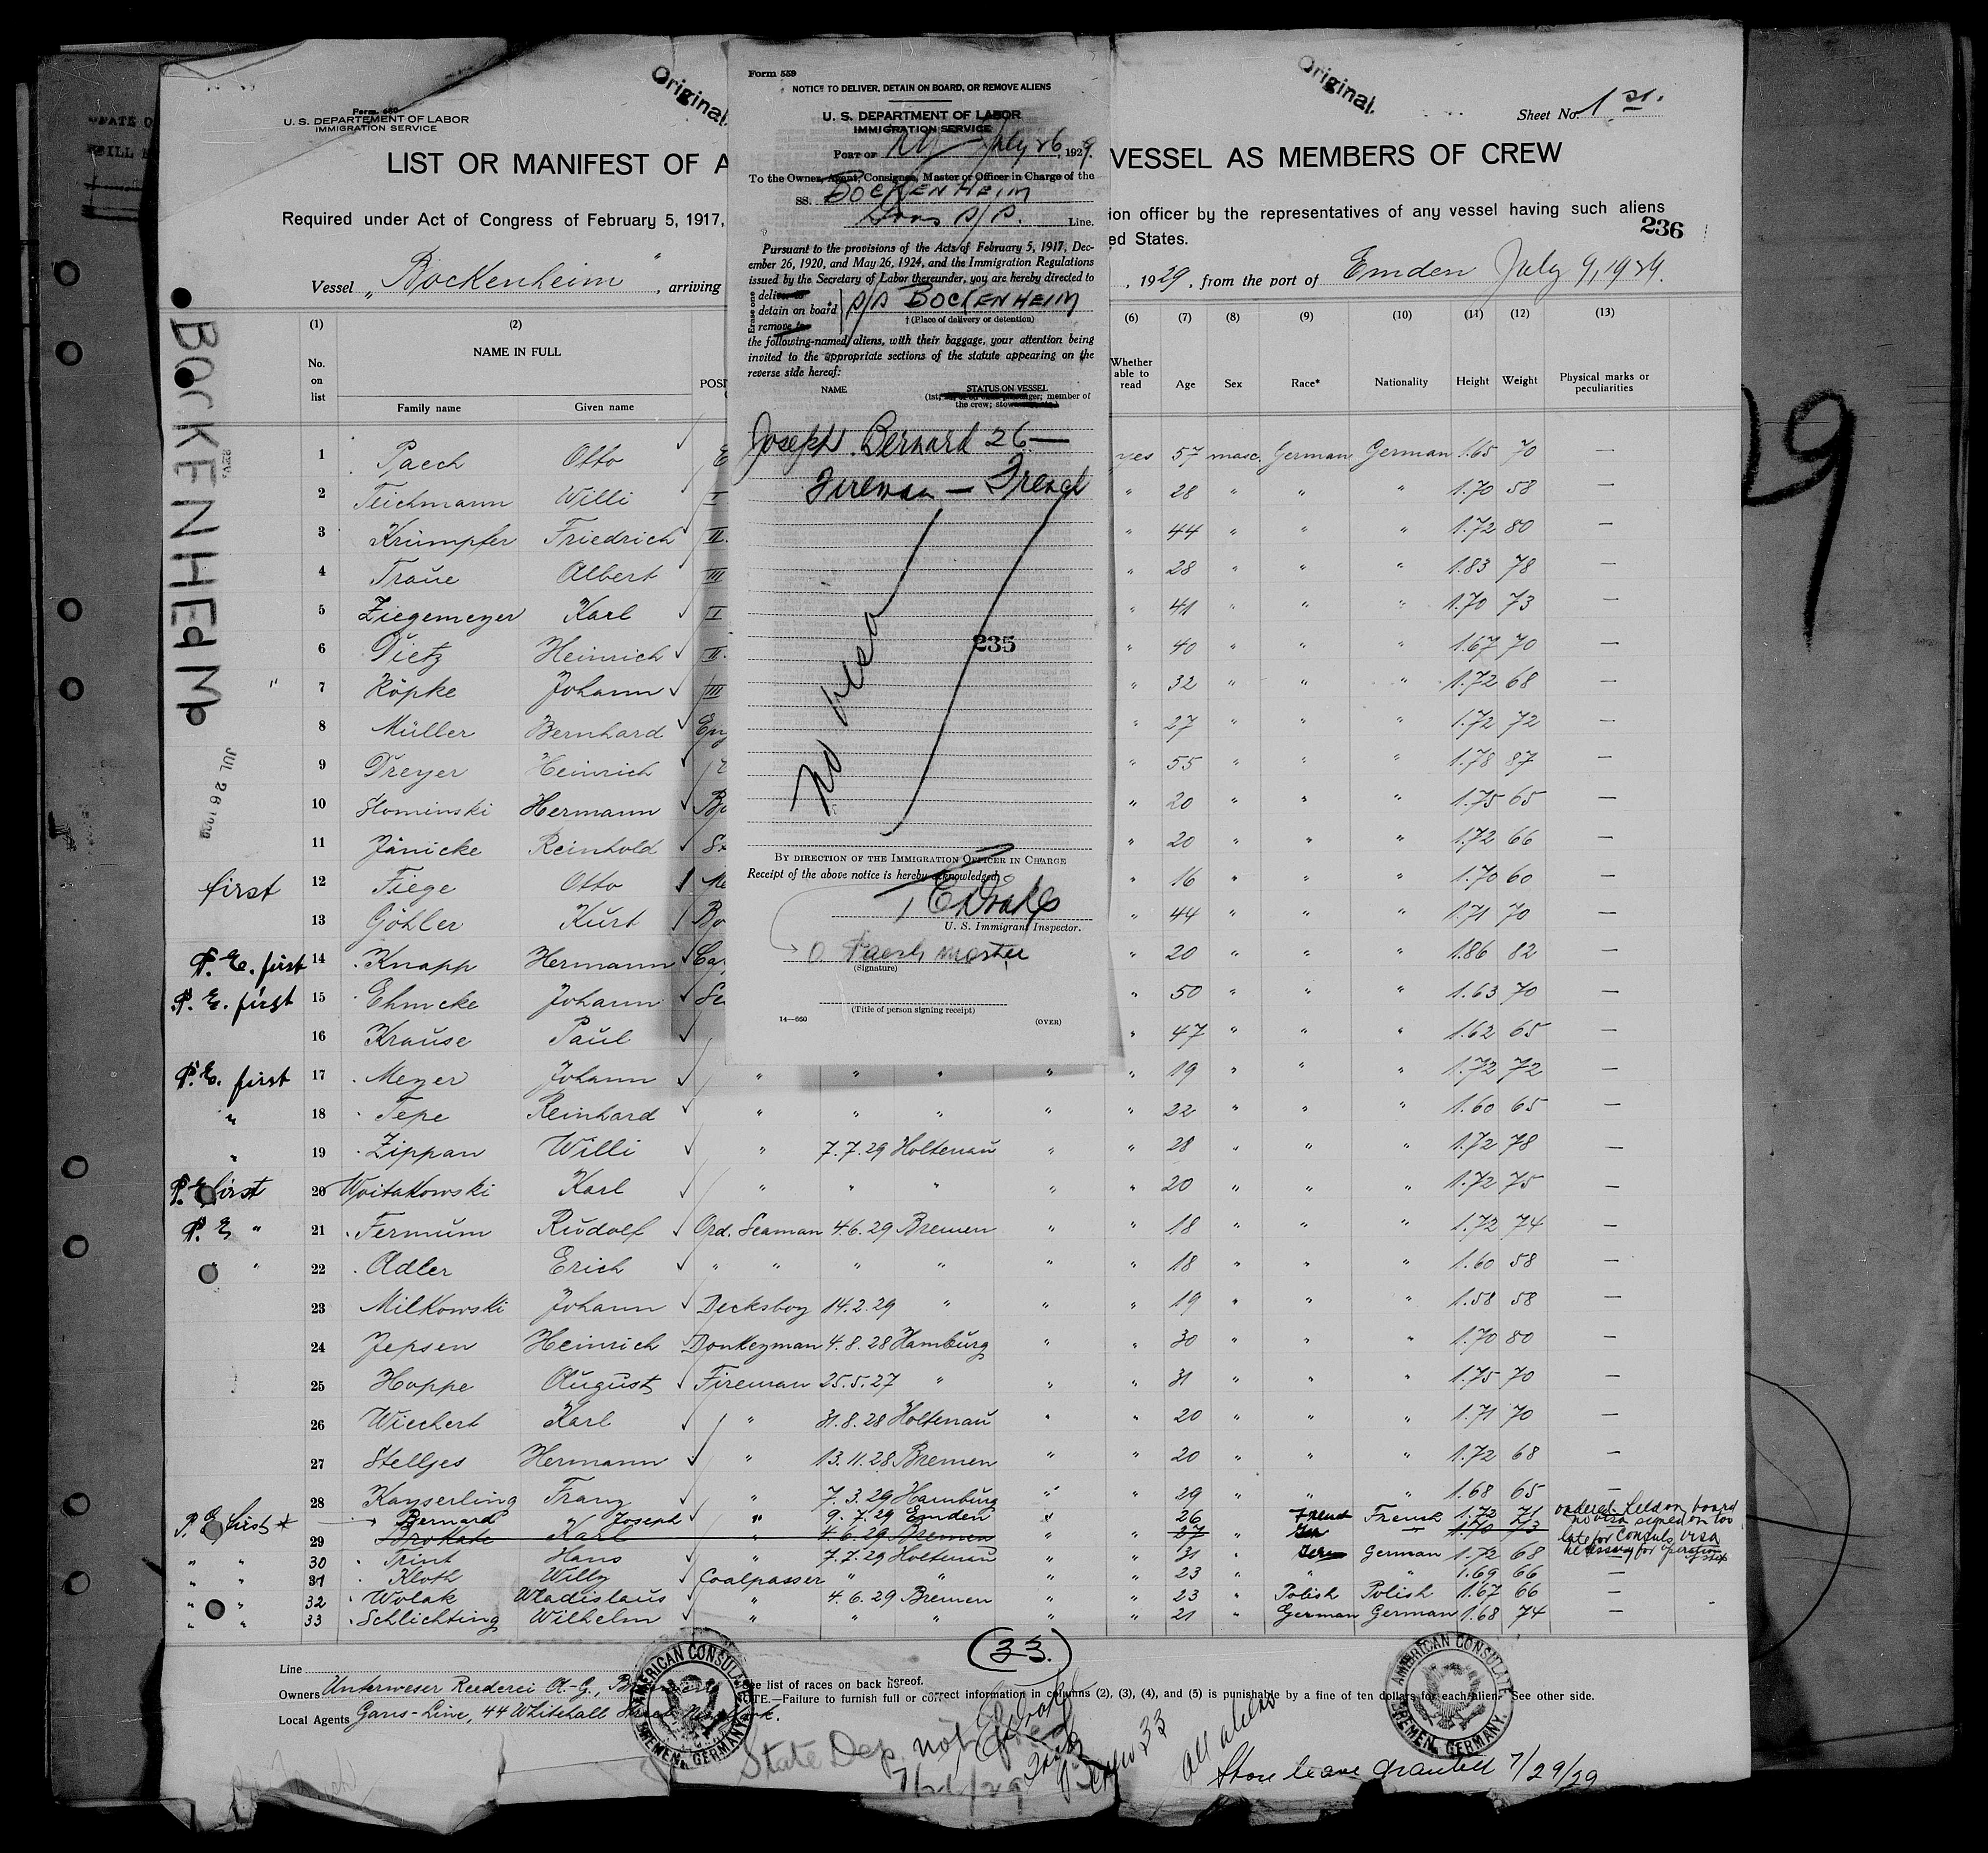 Original.
Original.
Form 680
U. S. DEPARTEMENT OF LABOR
IMMIGRATION SERVICE
Sheet No. 1 st.
LIST OR MANIFEST OF A
VESSEL AS MEMBERS OF CREW
Required under Act of Congress of February 5, 1917,
ion officer by the representatives of any vessel having such aliens
ed States.
236
Vessel „Bockenheim", arriving
, 1929, from the port of Emden July 9, 1929.
Form 559
NOTICE TO DELIVER, DETAIN ON BOARD, OR REMOVE ALIENS
U. S. DEPARTMENT OF LABOR
IMMIGRATION SERVICE
PORT OF NY July 26, 1929.
To the Owner, Agent, Consignee, Master or Officer in Charge of the
SS. BOCKENHEIM
S/S. Line.
Pursuant to the provisions of the Acts of February 5, 1917, Dec-
ember 26, 1920, and May 26, 1924, and the Immigration Regulations
issued by the Secretary of Labor thereunder, you are hereby directed to
Erase one
deliver to
detain on board S/S BOCKENHEIM
remove to
† (Place of delivery or detention)
the following-named aliens, with their baggage, your attention being
invited to the appropriate sections of the statute appearing on the
reverse side hereof:
NAME STATUS ON VESSEL
member of
the crew;
Joseph Bernard 26 —
Fireman — French
No visa
235
BY DIRECTION OF THE IMMIGRATION OFFICER IN CHARGE
Receipt of the above notice is hereby acknowledged
U. S. Immigrant Inspector.
O Paech master
(Signature)
(Title of person signing receipt)
14—660
(OVER)
BOCKENHEIM
JUL 26 1929
(1) (2) (6) (7) (8) (9) (10) (11) (12) (13)
No. on list NAME IN FULL Family name Given name POSI Whether able to read Age Sex Race* Nationality Height Weight Physical marks or peculiarities
1 Paech Otto yes 57 masc. German German 1.65 70 —
2 Teichmann Willi I " 28 " " " 1.70 58 —
3 Krümpfer Friedrich II. " 44 " " " 1.72 80 —
4 Traue Albert III " 28 " " " 1.83 78 —
5 Ziegemeyer Karl I " 41 " " " 1.70 73 —
6 Dietz Heinrich II. " 40 " " " 1.67 70 —
7 Köpke Johann III " 32 " " " 1.72 68 —
8 Müller Bernhard Eng " 27 " " " 1.72 72 —
9 Dreyer Heinrich " 55 " " " 1.78 87 —
10 Slominski Hermann " 20 " " " 1.75 65 —
11 Jänicke Reinhold " 20 " " " 1.72 66 —
first 12 Fiege Otto " 16 " " " 1.70 60 —
13 Göhler Kurt Bo " 44 " " " 1.71 70 —
P. E. first 14 Knapp Hermann Car " 20 " " " 1.86 82 —
P. E. first 15 Ehmcke Johann Se " 50 " " " 1.63 70 —
16 Krause Paul " 47 " " " 1.62 65 —
P. E. first 17 Meyer Johann " " " " " 19 " " " 1.72 72 —
" 18 Tepe Reinhard " " " " " 22 " " " 1.60 65 —
" 19 Zippan Willi " 7.7.29 Holtenau " " 28 " " " 1.72 78 —
P. E. first 20 Woitakowski Karl " " " " " 20 " " " 1.72 75 —
P. E " 21 Fermum Rudolf Ord. Seaman 4.6.29 Bremen " " 18 " " " 1.72 74 —
" " 22 Adler Erich " " " " " " 18 " " " 1.60 58 —
23 Milkowski Johann Decksboy 14.2.29 " " " 19 " " " 1.58 58 —
24 Jepsen Heinrich Donkeyman 4.8.28 Hamburg " " 30 " " " 1.70 80 —
25 Hoppe August Fireman 25.5.27 " " " 31 " " " 1.75 70 —
26 Wiechert Karl " 31.8.28 Holtenau " " 20 " " " 1.71 70 —
27 Stelljes Hermann " 13.11.28 Bremen " " 20 " " " 1.72 68 —
28 Kayserling Franz " 7.3.29 Hamburg " " 29 " " " 1.68 65 —
P. E. first * → Bernard Joseph " 9.7.29 Emden " 26 French French 1.72 71 ordered held on board no visa signed on too late for Consuls visa necessary for operation of ship
29 Brokate Karl " 4.6.29 Bremen " " 37 " Ger — 1.70 73
" " 30 Trint Hans " 7.7.29 Holtenau " " 31 " German 1.72 68
" " 31 Kloth Willy Coalpasser " " " " 23 " " " 1.69 66 —
" " 32 Wolak Wladislaus " 4.6.29 Bremen " " 23 " Polish Polish 1.67 66 —
" " 33 Schlichting Wilhelm " " " " " 21 " German German 1.68 74 —
(33.)
Line
Owners Unterweser Reederei A.-G.,
Local Agents Gans-Line, 44 Whitehall
list of races on back hereof.
NOTE.—Failure to furnish full or correct information in columns (2), (3), (4), and (5) is punishable by a fine of ten dollars for each alien. See other side.
AMERICAN CONSULATE
BREMEN, GERMANY.
AMERICAN CONSULATE
BREMEN, GERMANY.
State Dep. not
crew 33
All aliens
Shore leave granted 7/29/29